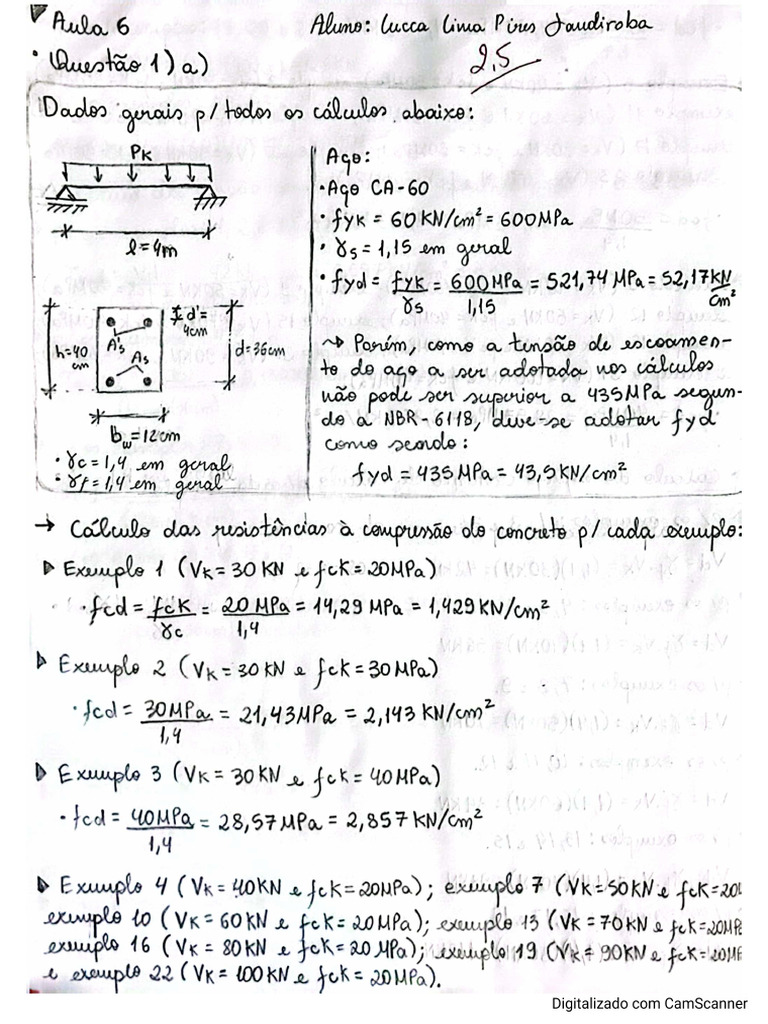 Aula 6 Aluno: Lucca Lima Pires Jandiroba
• Questão 1) a) 2,5
Dados gerais p/ todos os cálculos abaixo:
PK
l = 4m
h=40 cm
A's
As
d' = 4cm
d=36cm
bw=12cm
• γc = 1,4 em geral
• γf = 1,4 em geral
Aço:
• Aço CA-60
• fyk = 60 KN/cm² = 600MPa
• γs = 1,15 em geral
• fyd = fyk/γs = 600MPa/1,15 = 521,74 MPa = 52,17 KN/cm²
↝ Porém, como a tensão de escoamen-
to do aço a ser adotada nos cálculos
não pode ser superior a 435MPa segun-
do a NBR-6118, deve-se adotar fyd
como sendo:
fyd = 435MPa = 43,5KN/cm²
→ Cálculo das resistências à compressão do concreto p/ cada exemplo:
▷ Exemplo 1 (VK = 30 KN e fcK = 20MPa)
• fcd = fcK/γc = 20 MPa/1,4 = 14,29 MPa = 1,429 KN/cm²
▷ Exemplo 2 (VK = 30 KN e fcK = 30MPa)
• fcd = 30MPa/1,4 = 21,43MPa = 2,143 KN/cm²
▷ Exemplo 3 (VK = 30 KN e fcK = 40MPa)
• fcd = 40MPa/1,4 = 28,57MPa = 2,857 KN/cm²
▷ Exemplo 4 (VK = 40KN e fcK = 20MPa); exemplo 7 (VK = 50KN e fcK = 20
exemplo 10 (VK = 60 KN e fcK = 20MPa); exemplo 13 (VK = 70KN e fcK = 20MP
exemplo 16 (VK = 80 KN e fcK = 20 MPa); exemplo 19 (VK = 90KN e fcK = 20M
e exemplo 22 (VK = 100 KN e fcK = 20MPa).
Digitalizado com CamScanner